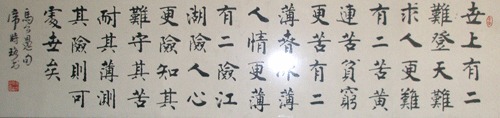 世上有二
難登天難
求人更難
有二苦黃
連苦貧窮
更苦有二
薄春冰薄
人情更薄
有二險江
湖險人心
更險知其
難守其苦
耐其薄測
其險則可
處世矣